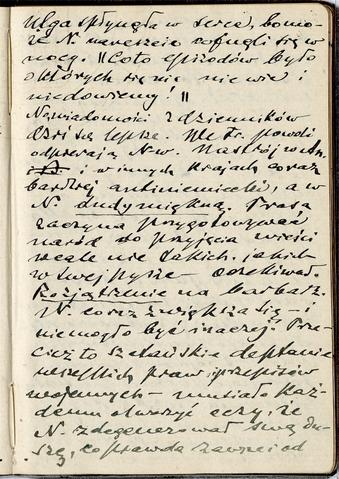 Ulga spłynęła w serce, bo mo-
że N. nareszcie cofnęli się w
nocy. || Coto epizodów było
o których się nie wie i
niedowiemy! ||
Nowiadomości z dzienników
dziś są lepsze. We Fr. powoli
odpierają N-w. Nastrój w An.
i w innych krajach coraz
bardziej antiniemiecki, a w
N. dudy miękną. Prasa
zaczyna przygotowywać
naród do przyjęcia wieści
wcale nie takich, jakich
w swej pysze oczekiwał.
Rozjątrzenie na barbarz.
N. coraz zwiększa się – i
niemogło być inaczej. Prze-
cież to szatańskie deptanie
wszelkich praw i przepisów
wojennych – musiało każ-
demu otworzyć oczy, że
N. zdegenerował swą du-
szę, co prawda zawsze od